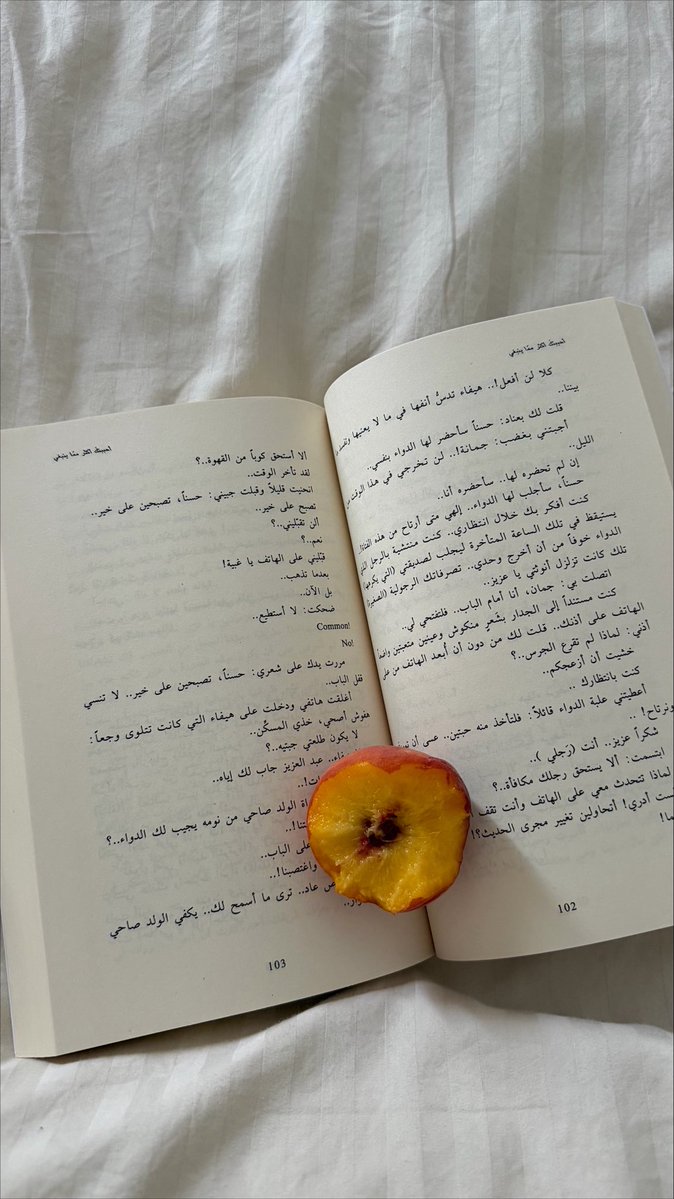 أحببتك أكثر مما ينبغي
كلا لن أفعل!.. هيفاء تدسُّ أنفها في ما لا يعنيها وتفسد
بيننا..
قلت لك بعناد: حسناً سأحضر لها الدواء بنفسي..
أجبتني بغضب: جمانة!.. لن تخرجي في هذا الوقت من
الليل..
إن لم تحضره لها.. سأحضره أنا..
حسناً، سأجلب لها الدواء.. إلهي متى أرتاح من هذه
كنت أفكر بك خلال انتظاري.. كنت منتشية بالرجل الذي
يستيقظ في تلك الساعة المتأخرة ليجلب لصديقتي (التي يكرهها)
الدواء خوفاً من أن أخرج وحدي.. تصرفاتك الرجولية (الصغيرة)
تلك كانت تزلزل أنوثتي يا عزيز..
اتصلت بي: جمان، أنا أمام الباب.. فلتفتحي لي..
كنت مستنداً إلى الجدار بشعرٍ منكوش وعينين متعبتين واضعاً
الهاتف على أذنك.. قلت لك من دون أن أبعد الهاتف عن على
أذني: لماذا لم تقرع الجرس..؟
خشيت أن أزعجكم..
كنت بانتظارك ..
أعطيتني علبة الدواء قائلاً: فلتأخذ منه حبتين.. عسى أن
ونرتاح! ..
شكراً عزيز.. أنت (رَجلي )..
ابتسمت: ألا يستحق رجلك مكافأة..؟
لماذا تتحدث معي على الهاتف وأنت تقف
لست أدري! أتحاولين تغيير مجرى الحديث؟!
102
أحببتك أكثر مما ينبغي
ألا أستحق كوباً من القهوة..؟
لقد تأخر الوقت..
انحنيت قليلاً وقبلت جبيني: حسناً، تصبحين على خير..
تصبح على خير..
ألن تقبّليني..؟
نعم..؟
قبّليني على الهاتف يا غبية!
بعدما تذهب..
بل الآن..
ضحكت: لا أستطيع..
Common!
No!
مررت يدك على شعري: حسناً، تصبحين على خير.. لا تنسي
قفل الباب..
أغلقت هاتفي ودخلت على هيفاء التي كانت تتلوى وجعاً:
هفوش أصحي، خذي المسكّن..
لا يكون طلعتي جبتيه..؟
عبد العزيز جاب لك إياه..
الولد صاحي من نومه يجيب لك الدواء..؟
على الباب..
واغتصبنا!..
عاد.. ترى ما أسمح لك.. يكفي الولد صاحي
103